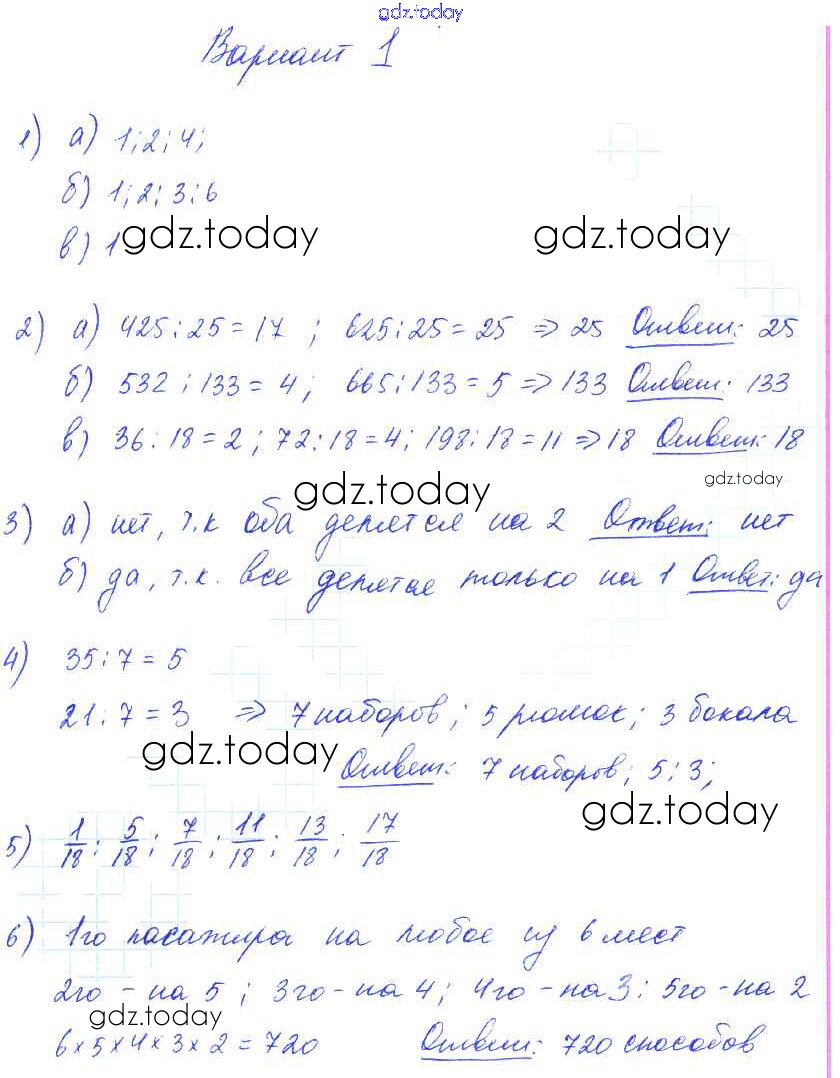 gdz.today
Вариант 1
1) а) 1; 2; 4;
б) 1; 2; 3; 6
в) 1
gdz.today gdz.today
2) а) 425 : 25 = 17 ; 625 : 25 = 25 => 25 Ответ: 25
б) 532 : 133 = 4 ; 665 : 133 = 5 => 133 Ответ: 133
в) 36 : 18 = 2 ; 72 : 18 = 4 ; 198 : 18 = 11 => 18 Ответ: 18
gdz.today
gdz.today
3) а) нет, т.к оба делятся на 2 Ответ: нет
б) да, т.к. все делятся только на 1 Ответ: да
4) 35 : 7 = 5
21 : 7 = 3 => 7 наборов ; 5 рюмок ; 3 бокала
gdz.today
Ответ: 7 наборов ; 5 ; 3 ;
gdz.today
5) 1/18 ; 5/18 ; 7/18 ; 11/18 ; 13/18 ; 17/18
6) 1го пасажира на любое из 6 мест
2го - на 5 ; 3го - на 4 ; 4го - на 3 ; 5го - на 2
gdz.today
6 × 5 × 4 × 3 × 2 = 720 Ответ: 720 способов